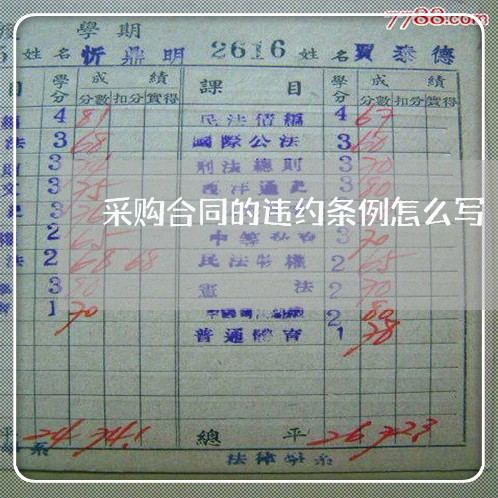 7788.com
學期
姓名 忻鼎明 2616 姓名 賈泰德
目 學分 成績 課目 學分 成績
分數 扣分 實得 分數 扣分 實得
4 81 民法債編 4 67
法 3 68 國際公法 3 60
3 刑法總則 3 70
3 75 西洋通史 3 80
采购合同的违约条例怎么写
2 65 3 70
法 2 68 68 民法物權 2 65
3 80 憲法 2 70
1 70 2 80
普通體育 1 78
平 24 74.1 總平 26 72.3
系 法律學系